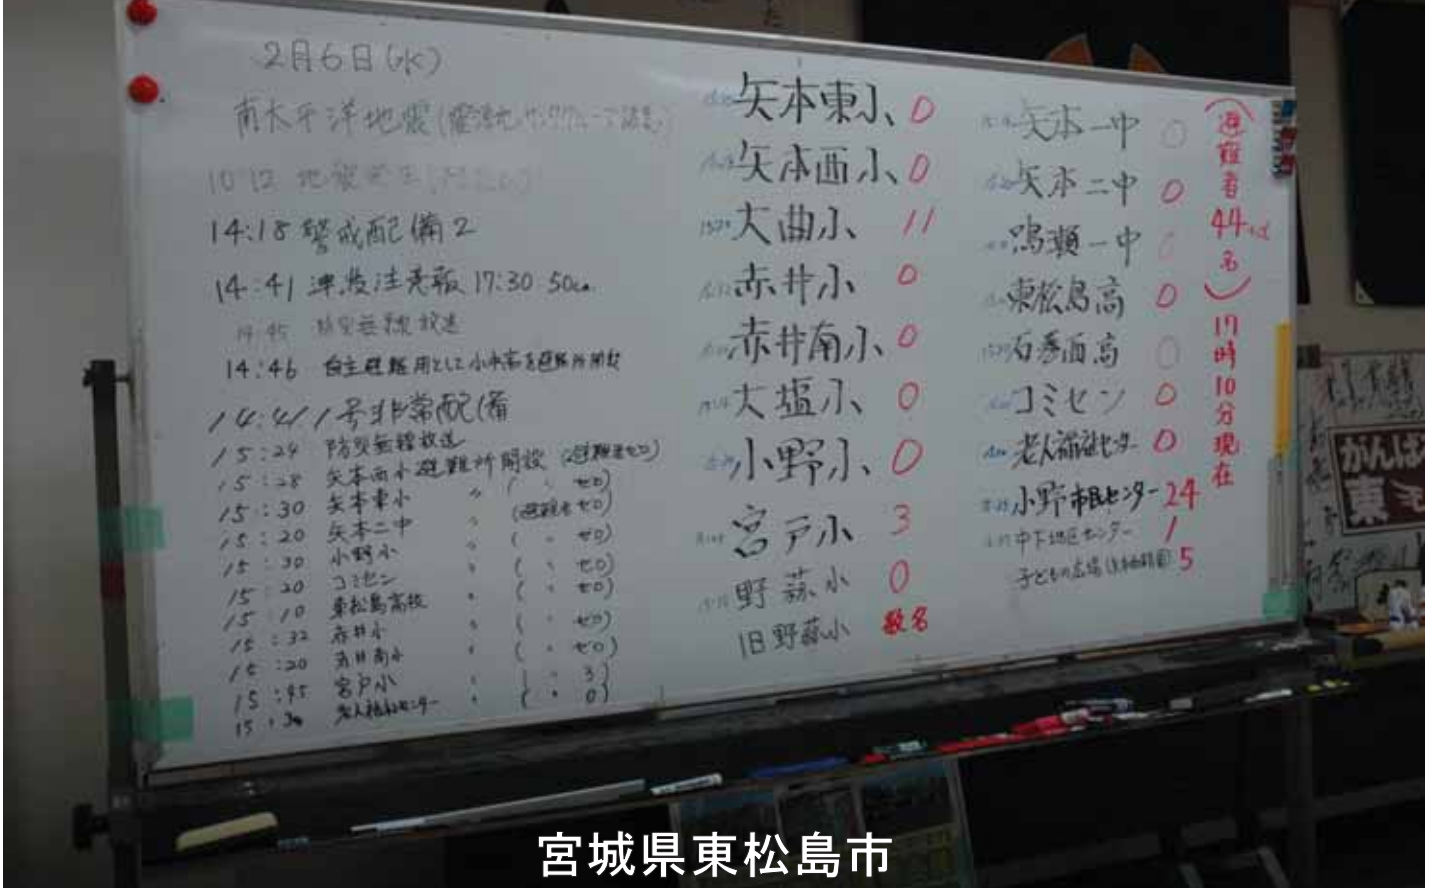 2月6日(水)
南太平洋地震(
10:12 地震発生
14:18 警戒配備2
14:41 津波注意報 17:30 50cm
14:45 防災無線放送
14:46 自主避難用として小中高を避難所開設
14:41 1号非常配備
15:24 防災無線放送
15:28 矢本西小避難所開設 (避難者ゼロ)
15:30 矢本東小 〃 (避難者ゼロ)
15:20 矢本二中 〃 ( 〃 ゼロ)
15:30 小野小 〃 ( 〃 ゼロ)
15:20 コミセン 〃 ( 〃 ゼロ)
15:10 東松島高校
15:32 赤井小 〃 ( 〃 ゼロ)
15:20 赤井南小 〃 ( 〃 ゼロ)
15:45 宮戸小 〃 ( 〃 3)
15:30 老人福祉センター 〃 ( 〃 0)
矢本東小 0
矢本西小 0
大曲小 11
赤井小 0
赤井南小 0
大塩小 0
小野小 0
宮戸小 3
野蒜小 0
旧野蒜小 数名
矢本一中 0
矢本二中 0
鳴瀬一中 0
東松島高 0
石巻西高 0
コミセン 0
老人福祉センター 0
小野市民センター 24
中下地区センター 1
子どもの広場 5
(避難者44 名)17時10分現在
がんば
東
宮城県東松島市